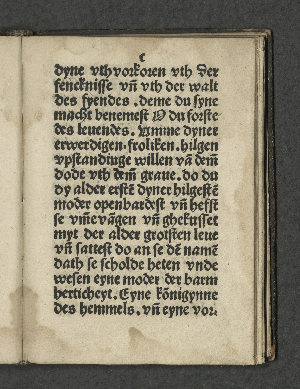 c
dyne vthvorkoren vth der
fencknisse vñ vth der walt
des fyendes . deme du syne
macht benemest O du forste
des leuendes. Vmme dyner
erwerdigen. froliken. hilgen
vpstandinge willen vā dem̄
dode vth dem̄ graue. do du
dy alder erstē dyner hilgestē
moder openbardest vñ hefst
se vm̄evāgen vñ ghekusset
myt der alder grotsten leue
vñ sattest do an se dē namē
dath se scholde heten vnde
wesen eyne moder der barm
herticheyt. Eyne kōnigynne
des hemmels. vñ eyne vor⸗